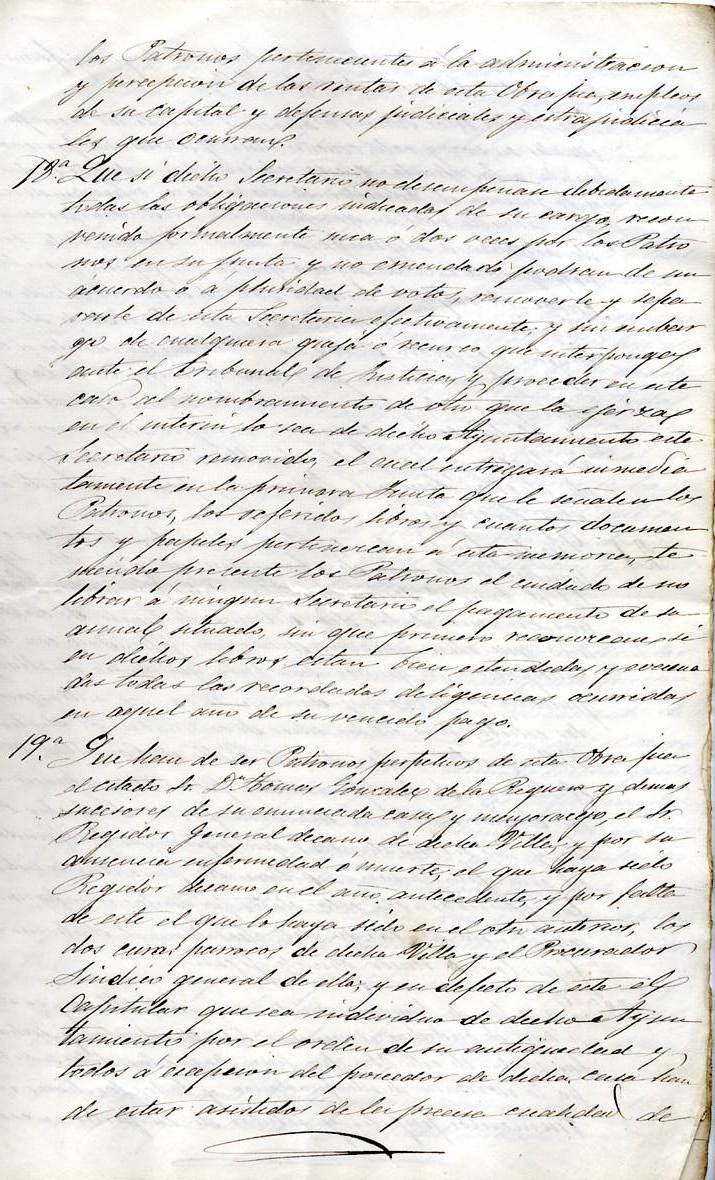 los Patronos pertenecientes á la administracion
y percepcion de las rentas de esta Obra pia, empleos
de su capital y defensas judiciales y estrajudicia
les que ocurran.
18.ª Que si dicho Secretario no desempeñare debidamente
todas las obligaciones indicadas de su cargo, recon
venido formalmente una ó dos veces por los Patro
nos en su junta y no enmendado podran de un
acuerdo ó á pluridad de votos, removerle y sepa
rarle de esta Secretaria efectivamente, y sin embar
go de cualquiera queja ó recurso que interponga
ante el tribunal de Justicia, y proceder en este
caso al nombramiento de otro que la ejerza
en el interin lo sea de dicho Ayuntamiento este
Secretario removido, el cual entregara inmedia
tamente en la primera Junta que le señalen los
Patronos, los referidos libros y cuantos documen
tos y papeles pertenezcan á esta memoria, te
niendo presente los Patronos el cuidado de no
librar á ningun Secretario el pagamento de su
anual situado, sin que primero reconozcan si
en dichos libros estan bien estendidas y evacua
das todas las recordadas diligencias ocurridas
en aquel año de su vencido pago.
19.ª Que han de ser Patronos perpetuos de esta Obra pia
el citado Sr. Dn. Tomas Gonzalez de la Reguera y demas
succesores de su enunciada casa y mayorazgo, el Sr.
Regidor general decano de dicha Villa, y por su
ausencia enfermedad ó muerte, el que haya sido
Regidor decano en el año antecedente, y por falta
de este el que lo haya sido en el otro anterior, los
dos curas parrocos de dicha Villa y el Procurador
Sindico general de ella; y en defecto de este el
Capitular que sea individuo de dicho Ayun
tamiento por el orden de su antigüedad y
todos á escepcion del poseedor de dicha casa han
de estar asistidos de la precisa cualidad de